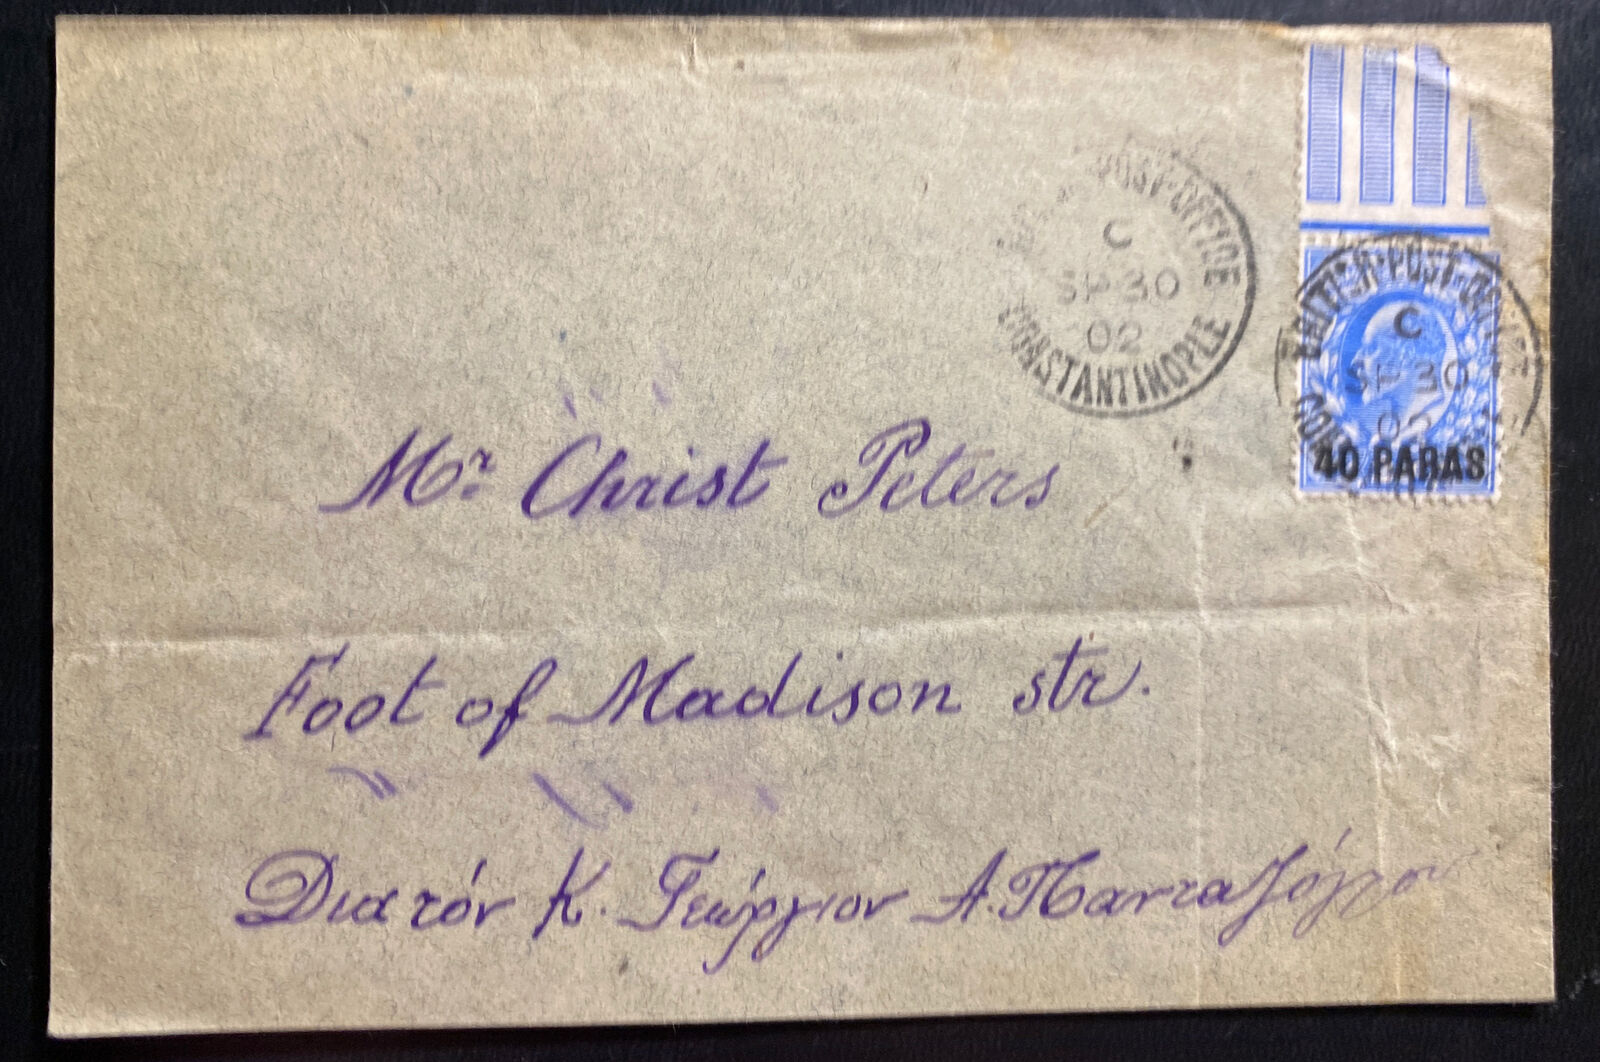 POST·OFFICE
C
SP 30
02
CONSTANTINOPLE
BRITISH·POST·OFFICE
C
SP 30
02
40 PARAS
Mr. Christ Peters
Foot of Madison str.
Διὰ τόν Κ. Γεώργιον Α.